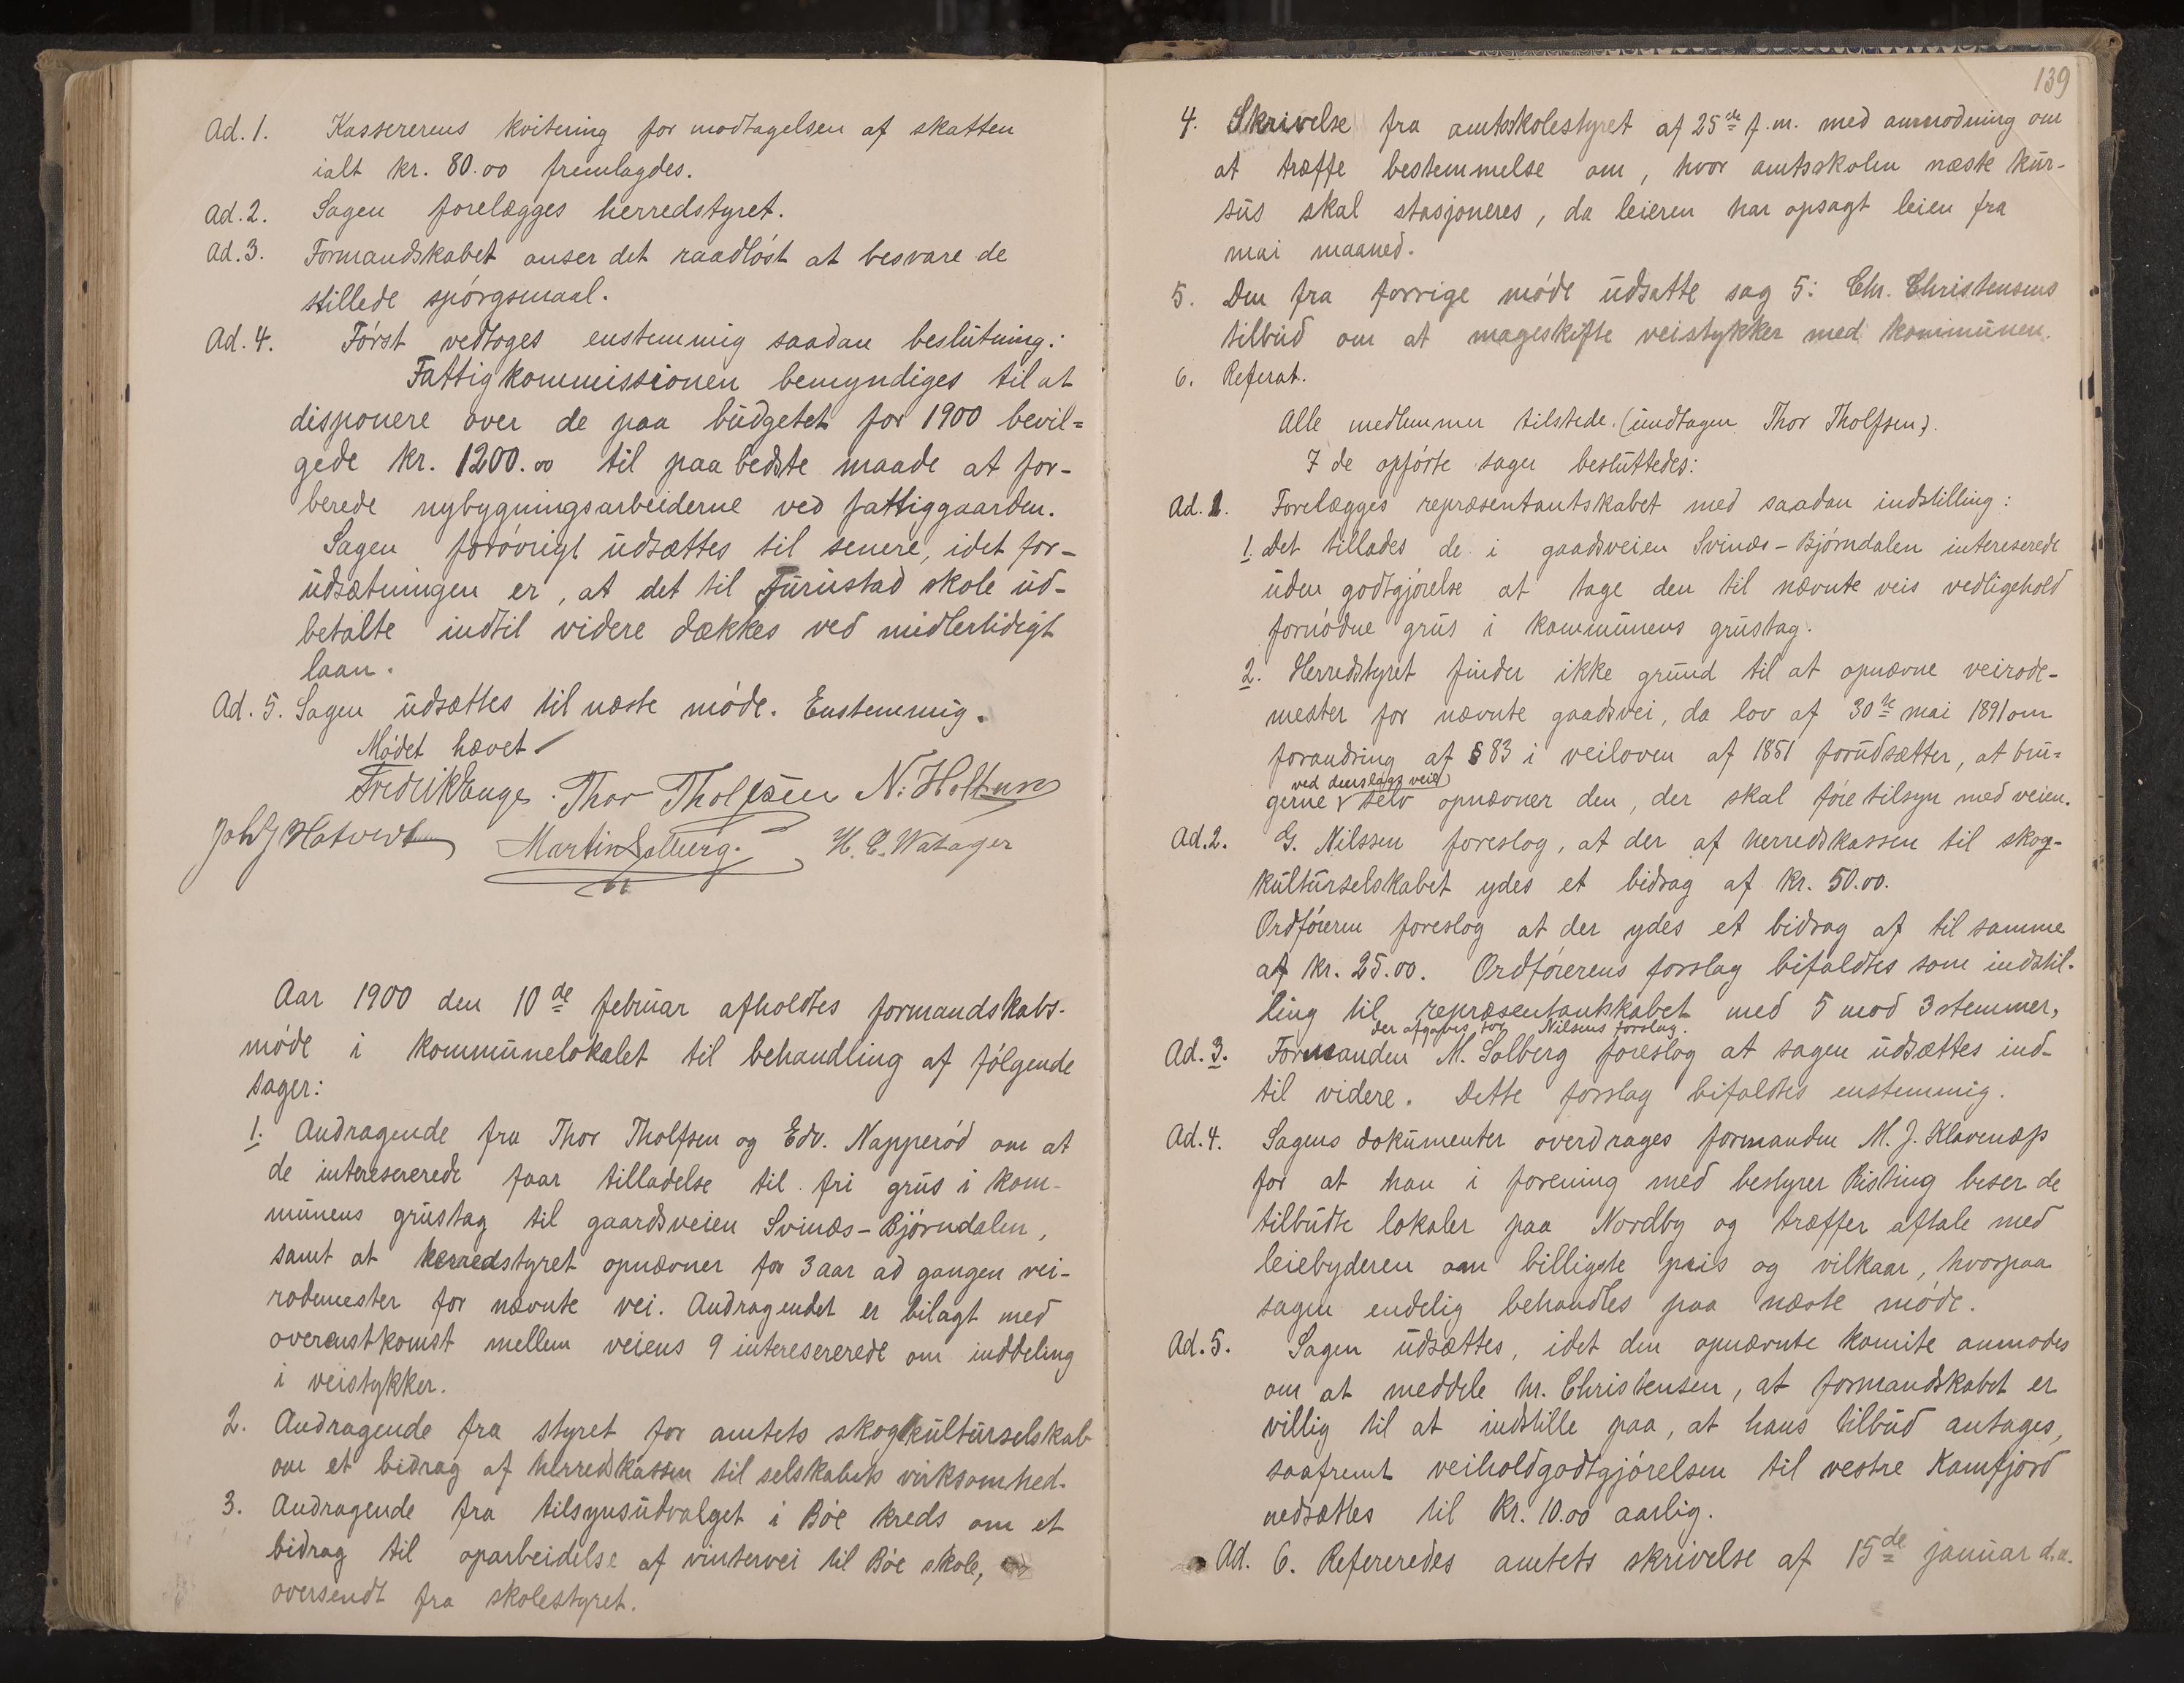 Ad. 1. Kassererens kvitering for modtagelsen af skatten
ialt kr. 80.00 fremlagdes.
Ad. 2. Sagen forelægges herredstyret.
Ad. 3. Formandskabet anser det raadløst at besvare de
stillede spørgsmaal.
Ad. 4. Først vedtoges enstemmig saadan beslutning:
Fattigkommissionen bemyndiges til at
disponere over de paa budgetet for 1900 bevil=
gede kr. 1200.00 til paa bedste maade at for-
berede nybygningsarbeiderne ved fattiggaarden.
Sagen forøvrigt udsættes til senere, idet for-
udsætningen er, at det til Furustad skole ud-
betalte indtil videre dækkes ved midlertidigt
laan.
Ad. 5. Sagen udsættes til næste møde. Enstemmig.
Mødet hævet
Fredrik Lange. Thor Tholfsen N. Holtung
Joh. J. Hotvedt Martin Solberg. H. C. Watager
Aar 1900 den 10de februar afholdtes formandskabs-
møde i kommunelokalet til behandling af følgende
sager:
1. Andragende fra Thor Tholfsen og Edv. Napperød om at
de interesererede faar tilladelse til fri grus i kom-
munens grustag til gaardsveien Svinæs-Bjørndalen,
samt at herredstyret opnævner for 3 aar ad gangen vei-
rodemester for nævnte vei. Andragendet er bilagt med
overenstkomst mellem veiens 9 interesererede om inddeling
i veistykker.
2. Andragende fra styret for amtets skogkulturselskab
om et bidrag af herredskassen til selskabets virksomhed.
3. Andragende fra tilsynsudvalget i Bøe kreds om et
bidrag til oparbeidelse af vintervei til Bøe skole,
oversendt fra skolestyret.
139
4. Skrivelse fra amtsskolestyret af 25de f.m. med anmodning om
at træffe bestemmelse om, hvor amtsskolen næste kur-
sus skal stasjoneres, da leieren har opsagt leien fra
mai maaned.
5. Den fra forrige møde udsatte sag 5: Chr. Christensens
tilbud om at mageskifte veistykker med kommunen.
6. Referat.
Alle medlemmer tilstede. (undtagen Thor Tholfsen).
I de opførte sager besluttedes:
Ad. 1. Forelægges repræsentantskabet med saadan indstilling:
1. Det tillades de i gaadsveien Svinæs-Bjørndalen intereserede
uden godtgjørelse at tage den til nævnte veis vedligehold
fornødne grus i kommunens grustag.
2. Herredstyret finder ikke grund til at opnævne veirode-
mester for nævnte gaadsvei, da lov af 30te mai 1891 om
forandring af § 83 i veiloven af 1851 forudsætter, at bru=
ved denslags veie
gerne selv opnævner den, der skal føre tilsyn med veien.
Ad. 2. G. Nilssen foreslog, at der af herredskassen til skog-
kulturselskabet ydes et bidrag af kr. 50.00.
Ordføreren foreslog at der ydes et bidrag af til samme
af kr. 25.00. Ordførerens forslag bifaldtes som indstil-
ling til repræsentantskabet med 5 mod 3 stemmer,
der afgaves for Nilsens forslag.
Ad. 3. Formanden M. Solberg foreslog at sagen udsættes ind-
til videre. Dette forslag bifaldtes enstemmig.
Ad. 4. Sagens dokumenter overdrages formanden M. J. Klavenæs
for at han i forening med bestyrer Risting beser de
tilbudte lokaler paa Nordby og træffer aftale med
leiebyderen om billigste pris og vilkaar, hvorpaa
sagen endelig behandles paa næste møde.
Ad. 5. Sagen udsættes, idet den opnævnte komite anmodes
om at meddele hr. Christensen, at formandskabet er
villig til at indstille paa, at hans tilbud antages,
saafremt veiholdgodtgjørelsen til vestre Kamfjord
nedsættes til kr. 10.00 aarlig.
Ad. 6. Refereredes amtets skrivelse af 15de januar d.a.